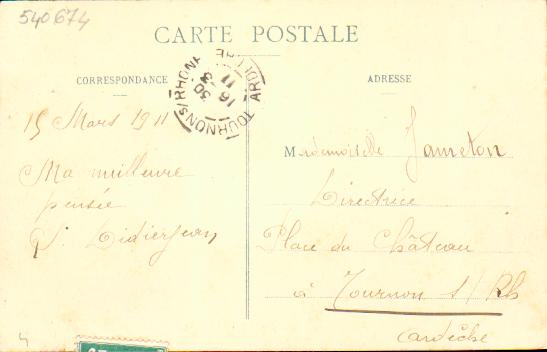 540674
CARTE POSTALE
CORRESPONDANCE
ADRESSE
TOURNON S/ RHONE ARDECHE
16 30
15 Mars 1911
Ma meilleure
pensée
Didierjean
Mademoiselle Jameton
Directrice
Place du Château
à Tournon s/ Rh
Ardèche